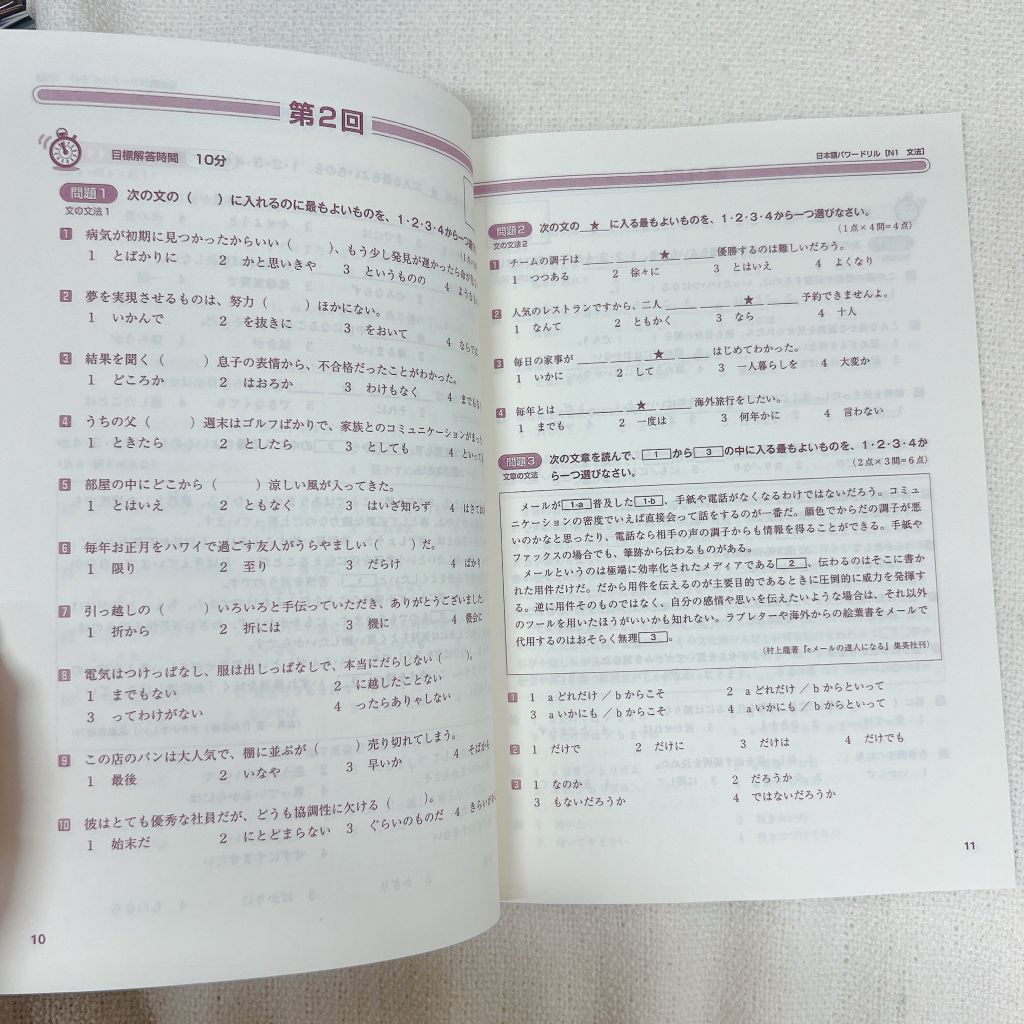 第2回
目標解答時間 10分
問題1 次の文の( )に入れるのに最もよいものを、1・2・3・4から一つ選び
文の文法1
1 病気が初期に見つかったからいい( )、もう少し発見が遅かったら
1 とばかりに 2 かと思いきや 3 というものの 4 ような
2 夢を実現させるものは、努力( )ほかにない。
1 いかんで 2 を抜きに 3 をおいて 4 ならでは
3 結果を聞く( )息子の表情から、不合格だったことがわかった。
1 どころか 2 はおろか 3 わけもなく 4 までもな
4 うちの父( )週末はゴルフばかりで、家族とのコミュニケーションがまった
1 ときたら 2 としたら 3 としても 4 といって
5 部屋の中にどこから( )涼しい風が入ってきた。
1 とはいえ 2 ともなく 3 はいざ知らず 4 はさてお
6 毎年お正月をハワイで過ごす友人がうらやましい( )だ。
1 限り 2 至り 3 だらけ 4 ばかり
7 引っ越しの( )いろいろと手伝っていただき、ありがとうございました
1 折から 2 折には 3 機に 4 機会に
8 電気はつけっぱなし、服は出しっぱなしで、本当にだらしない( )。
1 までもない 2 に越したことない
3 ってわけがない 4 ったらありゃしない
9 この店のパンは大人気で、棚に並ぶが( )売り切れてしまう。
1 最後 2 いなや 3 早いか 4 そばから
10 彼はとても優秀な社員だが、どうも協調性に欠ける( )。
1 始末だ 2 にとどまらない 3 ぐらいのものだ 4 きらいが
10
日本語パワードリル [N1 文法]
問題2 次の文の ★ に入る最もよいものを、1・2・3・4から一つ選びなさい。
文の文法2 (1点×4問=4点)
1 チームの調子は ____ ____ ★ ____ 優勝するのは難しいだろう。
1 つつある 2 徐々に 3 とはいえ 4 よくなり
2 人気のレストランですから、二人 ____ ____ ★ ____ 予約できませんよ。
1 なんて 2 ともかく 3 なら 4 十人
3 毎日の家事が ____ ____ ★ ____ はじめてわかった。
1 いかに 2 して 3 一人暮らしを 4 大変か
4 毎年とは ____ ____ ★ ____ 海外旅行をしたい。
1 までも 2 一度は 3 何年かに 4 言わない
問題3 次の文章を読んで、1 から 3 の中に入る最もよいものを、1・2・3・4か
文章の文法 ら一つ選びなさい。 (2点×3問=6点)
メールが 1-a 普及した 1-b 、手紙や電話がなくなるわけではないだろう。コミュ
ニケーションの密度でいえば直接会って話をするのが一番だ。顔色でからだの調子が悪
いのかなと思ったり、電話なら相手の声の調子からも情報を得ることができる。手紙や
ファックスの場合でも、筆跡から伝わるものがある。
メールというのは極端に効率化されたメディアである 2 、伝わるのはそこに書か
れた用件だけだ。だから用件を伝えるのが主要目的であるときに圧倒的に威力を発揮す
る。逆に用件そのものではなく、自分の感情や思いを伝えたいような場合は、それ以外
のツールを用いたほうがいいかも知れない。ラブレターや海外からの絵葉書をメールで
代用するのはおそらく無理 3 。
(村上龍著『eメールの達人になる』集英社刊)
1 1 aどれだけ/bからこそ 2 aどれだけ/bからといって
3 aいかにも/bからこそ 4 aいかにも/bからといって
2 1 だけで 2 だけに 3 だけは 4 だけでも
3 1 なのか 2 だろうか
3 もないだろうか 4 ではないだろうか
11